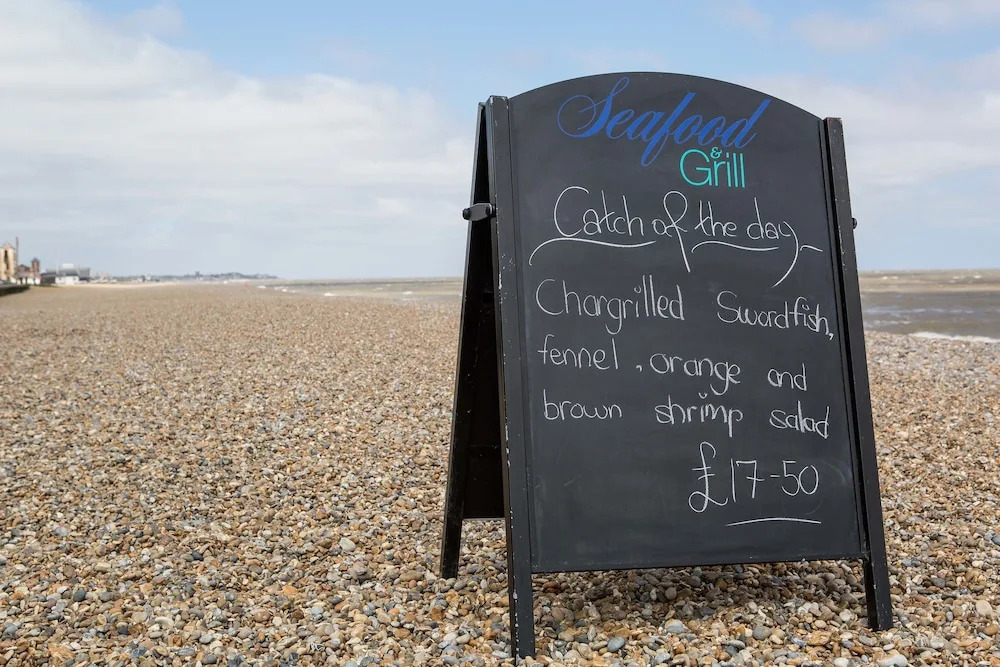 Seafood
& Grill
Catch of the day
Chargrilled Swordfish,
fennel, orange and
brown shrimp salad
£17-50